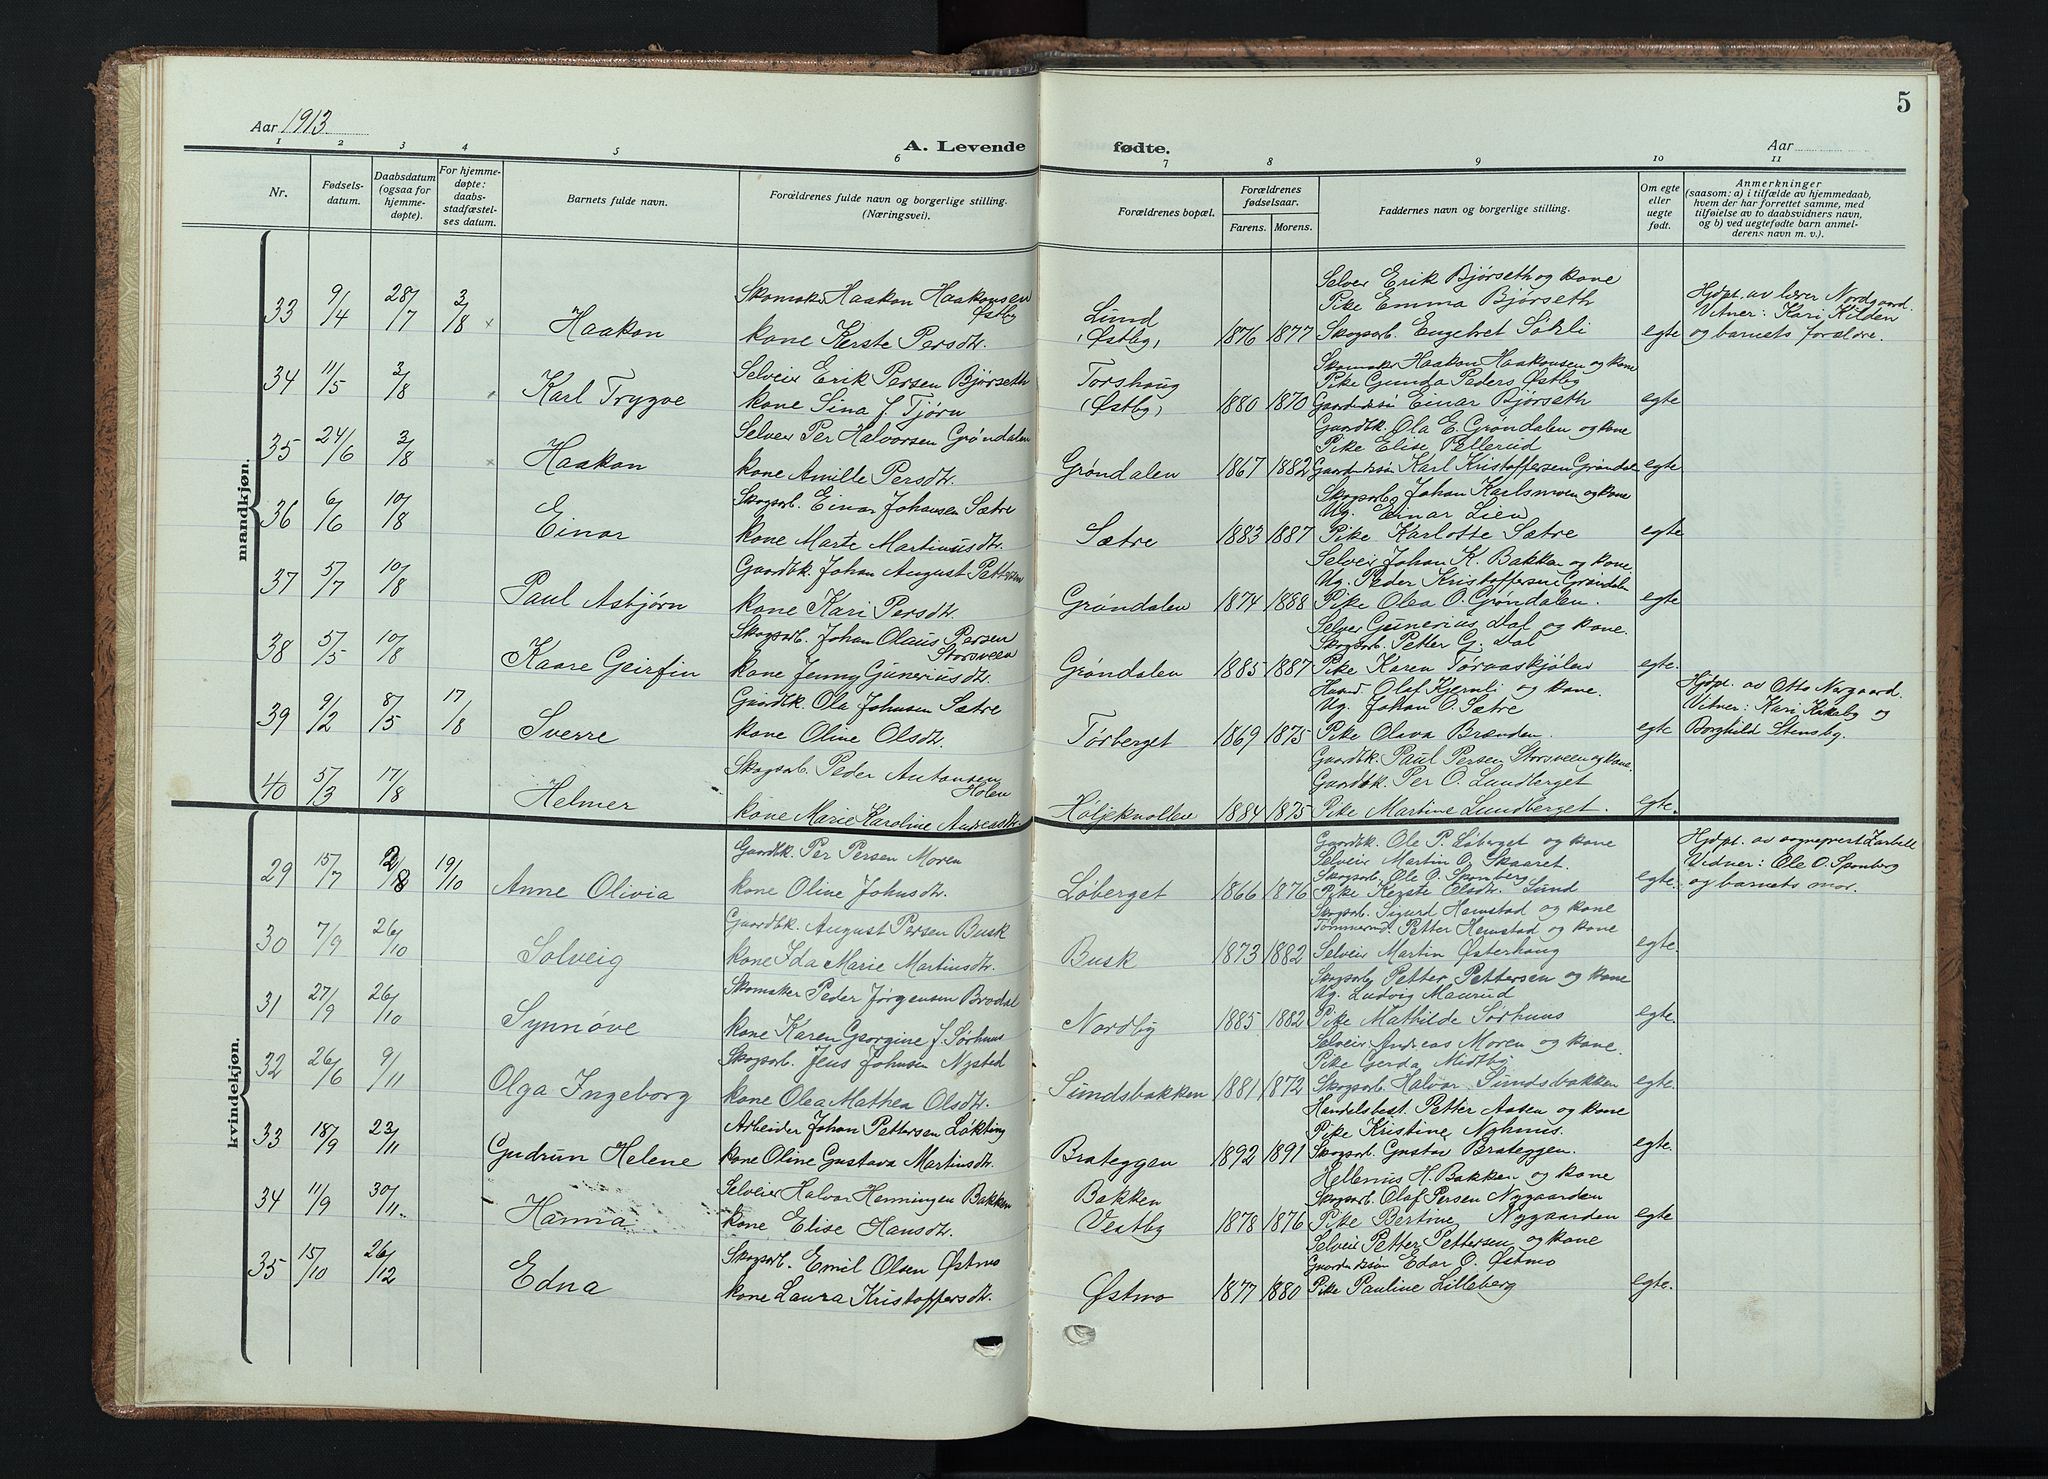 5
Aar 1913
A. Levende fødte.
Aar
1 2 3 4 5 6 7 8 9 10 11
Nr.
Fødsels-
datum.
Daabsdatum
(ogsaa for
hjemme-
døpte).
For hjemme-
døpte:
daabs-
stadfæstel-
ses datum.
Barnets fulde navn.
Forældrenes fulde navn og borgerlige stilling.
(Næringsvei).
Forældrenes bopæl.
Forældrenes
fødselsaar.
Farens. Morens.
Faddernes navn og borgerlige stilling.
Om egte
eller
uegte
født.
Anmerkninger
(saasom: a) i tilfælde av hjemmedaab,
hvem der har forrettet samme, med
tilføielse av to daabsvidners navn,
og b) ved uegtefødte barn anmel-
derens navn m. v.).
mandkjøn.
33 9/4 28/7 3/8 Haakon
Skomaker Haakon Haakonsen
Østby
kone Kerste Persdtr.
Lund
(Østby) 1876 1877
Selveier Erik Bjørseth og kone
Pike Emma Bjørseth
Skogsarb. Engebret Søkli
egte
Hjdpt. av lærer Nordgaard.
Vitner: Kari Kilden
og barnets forældre.
34 11/5 3/8 Karl Trygve
Selveier Erik Persen Bjørseth
kone Sina f. Tjørn
Torshaug
(Østby) 1880 1870
Skomaker Haakon Haakonsen og kone
Pike Gunda Peders Østby
Gaardbr.søn Einar Bjørseth
egte
35 24/6 3/8 Haakon
Selveier Per Halvorsen Grøndalen
kone Amille Persdtr.
Grøndalen 1867 1882
Gaardbk. Ola E. Grøndalen og kone
Pike Elise Pellerud
Gaardbr.søn Karl Kristoffersen Grøndalen
egte
36 6/6 10/8 Einar
Skogsarb. Einar Johansen Sætre
kone Marte Martinusdtr.
Sætre 1883 1887
Skogsarb. Johan Karlsmoen og kone
Ug. Einar Lien
Pike Karlotte Sætre
egte
37 5/7 10/8 Paul Asbjørn
Gaardbk. Johan August Pettersen
kone Kari Persdtr.
Grøndalen 1874 1888
Selveier Johan K. Bakken og kone
Ug. Peder Kristoffersen Grøndalen
Pike Olea O. Grøndalen.
egte
38 5/5 10/8 Kaare Geirfin
Skogsarb. Johan Olaus Persen
Storsveen
kone Jenny Guneriusdtr.
Grøndalen 1885 1887
Selveier Gunerius Dal og kone.
Skogsarb. Petter G. Dal
Pike Karen Tørvaaskjølen
egte.
39 9/2 8/5 17/8 Sverre
Gaardbk. Ola Johnsen Sætre
kone Oline Olsdtr.
Tørberget 1869 1875
Olaf Kjernli og kone.
Ug. Johan O. Sætre
Pike Olava Brænden.
egte
Hjdpt. av Otto Norgaard.
Vitner: Kari Kirkeby og
Borghild Stensby.
40 5/3 17/8 Helmer
Skogsarb. Peder Antonsen
Holen
kone Marie Karoline Andreasdtr.
Høljeknollen 1884 1875
Gaardbk. Paul Persen Storsveen og kone.
Gaardbk. Per O. Lundberget
Pike Martine Lundberget.
egte.
kvindekjøn.
29 15/7 12/8 19/10 Anne Olivia
Gaardbk. Per Persen Moren
kone Oline Johnsdtr.
Løberget 1866 1876
Gaardbk. Ole P. Løberget og kone
Selveier Martin O. Skaaret.
Skogsarb. Ole O. Sponberg
Pike Kerste Olsdtr. Lund
egte.
Hjdpt. av sogneprest
Vidner: Ole O. Sponberg
og barnets mor.
30 7/9 26/10 Solveig
Gaardbk. August Persen Busk
kone Ida Marie Martinsdtr.
Busk 1873 1882
Skogsarb. Sigurd Hemstad og kone
Tømmermd. Petter Hemstad og kone
Selveier Martin Østerhaug
egte.
31 27/9 26/10 Synnøve
Skomaker Peder Jørgensen Brodal
kone Karen Georgine f. Sørhuus
Nordby 1885 1882
Skogsarb. Petter Pettersen og kone
Ug. Ludvig Maurud
Pike Mathilde Sørhuus
egte.
32 26/6 9/11 Olga Ingeborg
Skogsarb. Jens Johnsen Nysted
kone Olea Mathea Olsdtr.
Sundsbakken 1881 1872
Selveier Andreas Moren og kone.
Pike Gerda Midtby
Skogsarb. Halvor Sundsbakken
egte.
33 18/9 23/11 Gudrun Helene
Arbeider Johan Pettersen Løkting
kone Oline Gustava Martinsdtr.
Brateggen 1892 1891
Handelsbest. Petter Aasen og kone
Pike Kristine Nohnus.
Skogsarb. Gustav Brateggen.
egte.
34 11/9 30/11. Hanna
Selveier Halvor Henningsen Bakken
kone Elise Hansdtr.
Bakken
Vestby 1878 1876
Hellenius H. Bakken og kone
Skogsarb. Olaf Persen Nygaarden
Pike Bertine Nygaarden
egte
35 15/10 26/12 Edna
Skogsarb. Emil Olsen Østmo
kone Laura Kristoffersdtr.
Østmo 1877 1880
Selveier Petter Pettersen og kone
Gaardbr.søn Edor O. Østmo
Pike Pauline Lilleberg
egte.